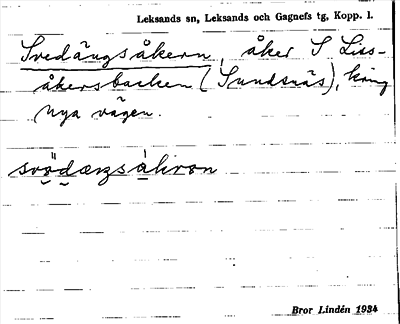 Leksands sn, Leksands och Gagnefs tg, Kopp. l.
Svedängsåkern, åker S Liss-
åkersbacken (Sundsnäs), kring
nya vägen.
svö̬d̬æŋsàkron
Bror Lindén 1934